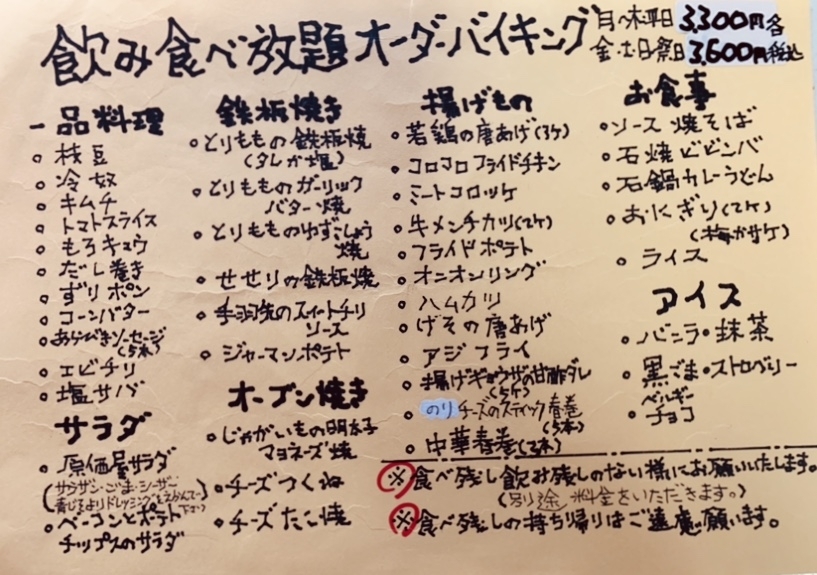 飲み食べ放題オーダーバイキング
月〜木平日3,300円各
金・土・日祭日3,600円税込
一品料理
。枝豆
。冷奴
。キムチ
。トマトスライス
。もろキュウ
。だし巻き
。ずりポン
。コーンバター
。あらびきソーセージ
(5本)
。エビチリ
。塩サバ
サラダ
。原価屋サラダ
(サウザン・ごま・シーザー
青じそよりドレッシングをえらんで下さい)
。ベーコンとポテト
チップスのサラダ
鉄板焼き
。とりももの鉄板焼
(タレか塩)
。とりもものガーリック
バター焼
。とりもものゆずこしょう
焼
。せせりの鉄板焼
。手羽先のスイートチリ
ソース
。ジャーマンポテト
オーブン焼き
。じゃがいもの明太子
マヨネーズ焼
。チーズつくね
。チーズたこ焼
揚げもの
。若鶏の唐あげ(3ケ)
。コロコロフライドチキン
。ミートコロッケ
。牛メンチカツ(2ケ)
。フライドポテト
。オニオンリング
。ハムカツ
。げその唐あげ
。アジフライ
。揚げギョウザの甘酢ダレ
(5ケ)
。のりチーズのスティック春巻
(5本)
。中華春巻(2本)
お食事
。ソース焼そば
。石焼ビビンバ
。石鍋カレーうどん
。おにぎり(2ケ)
(梅かサケ)
。ライス
アイス
。バニラ・抹茶
。黒ごま・ストロベリー
。ベルギー
チョコ
※食べ残し飲み残しのない様にお願いいたします。
(別途料金をいただきます。)
※食べ残しの持ち帰りはご遠慮願います。